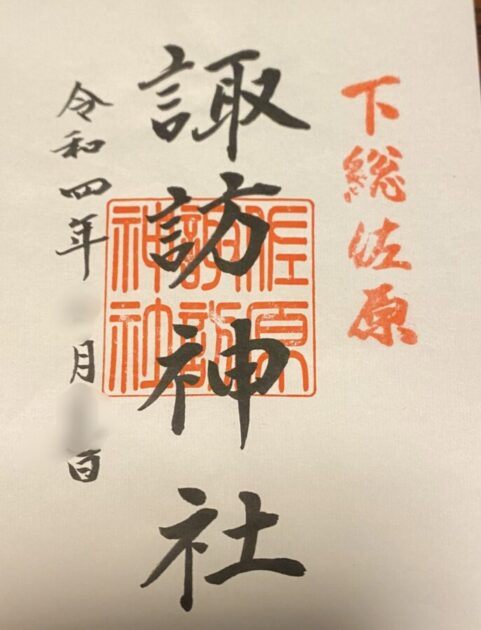 下総佐原
諏訪神社
佐原
諏訪
神社
令和四年 月 日